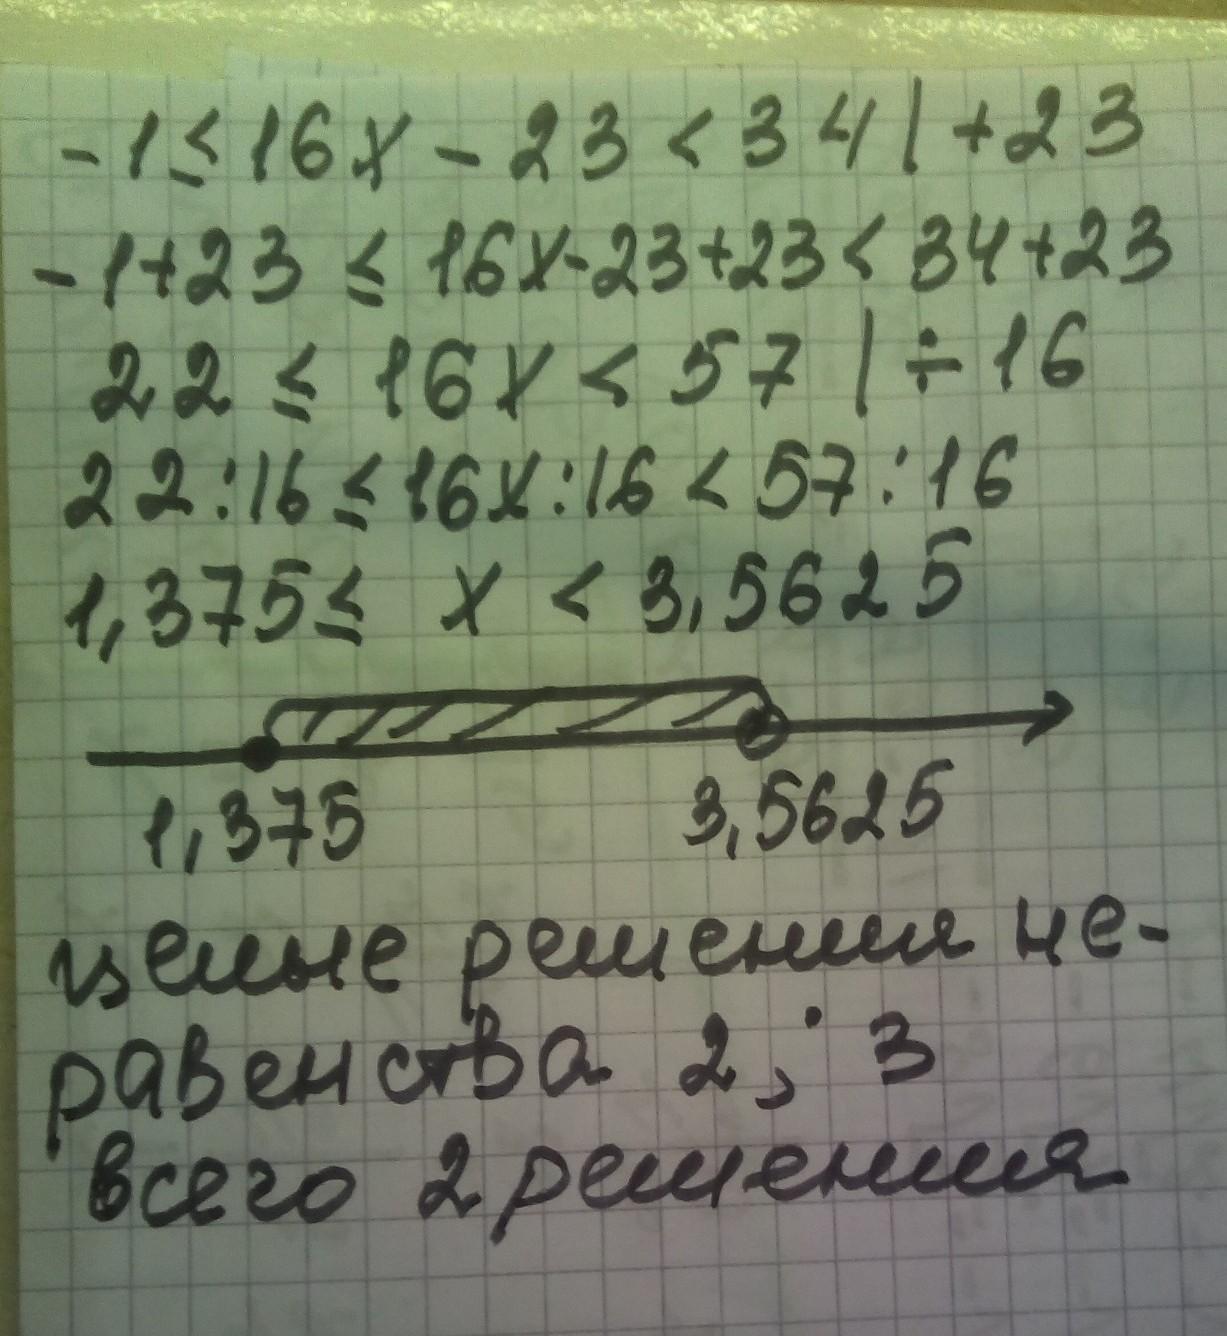 -1 ≤ 16x - 23 < 34 | +23
-1+23 ≤ 16x-23+23 < 34+23
22 ≤ 16x < 57 | ÷16
22:16 ≤ 16x:16 < 57:16
1,375 ≤ x < 3,5625
1,375 3,5625
целые решения не-
равенства 2; 3
всего 2 решения